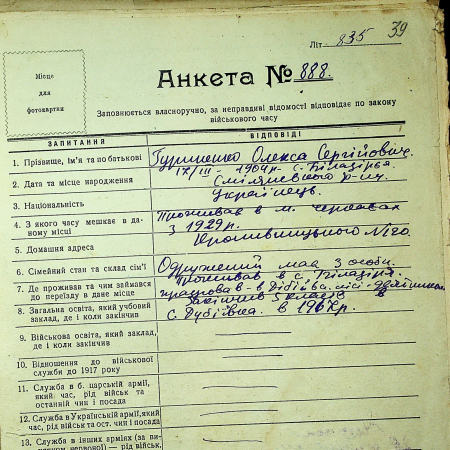 39
Літ. 835
Місце
для
фотокартки
Анкета № 888.
Заповнюється власноручно, за неправдиві відомості відповідає по закону
військового часу
ЗАПИТАННЯ
ВІДПОВІДІ
1. Прізвище, ім'я та по батькові
Олекса Сергійович.
IX/III - 1904р. с. Білазір'я
2. Дата та місце народження
Смілянського р-ну.
3. Національність
Українець.
4. З якого часу мешкає в даному місці
Проживав в м. Черкасах
з 1929г.
5. Домашня адреса
6. Сімейний стан та склад сім'ї
Одружений має 3 особи.
7. Де проживав та чим займався
до переїзду в дане місце
Проживав в с. Білазір'я.
працював в
8. Загальна освіта, який учбовий
заклад, де і коли закінчив
Закінчив 5 класів в
с. Дубіївка. в
9. Військова освіта, який заклад,
де і коли закінчив
10. Відношення до військової
служби до 1917 року
11. Служба в б. царській армії,
який час, рід військ та
останній чин і посада
12. Служба в Українській армії, який
час, рід військ та ост. чин і посада
13. Служба в інших арміях (за ви-
нятком червоної) — рід військ,